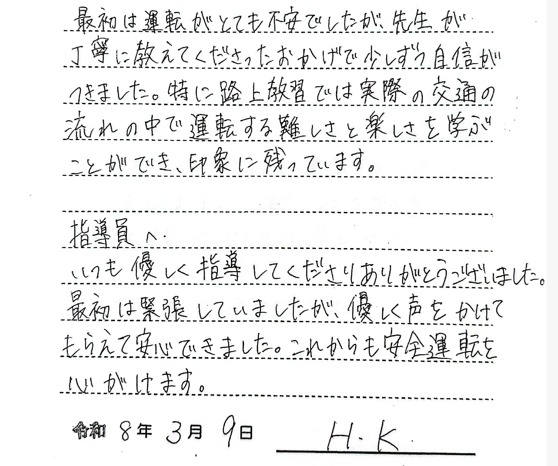 最初は運転がとても不安でしたが、先生が
丁寧に教えてくださったおかげで少しずつ自信が
つきました。特に路上教習では実際の交通の
流れの中で運転する難しさと楽しさを学ぶ
ことができ、印象に残っています。
指導員へ
いつも優しく指導してくださりありがとうございました。
最初は緊張していましたが、優しく声をかけて
もらえて安心できました。これからも安全運転を
心がけます。
令和 8年 3月 9日 H.K